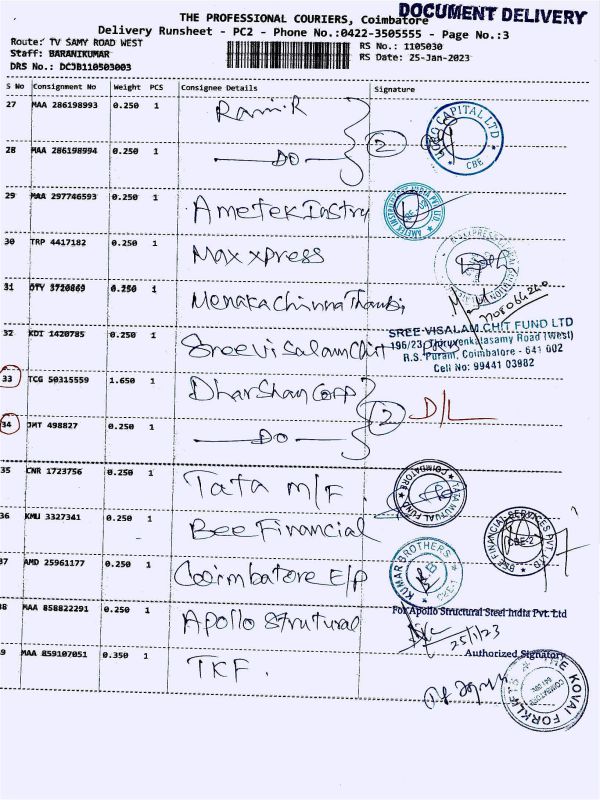 THE PROFESSIONAL COURIERS, Coimbatore
DOCUMENT DELIVERY
Delivery Runsheet - PC2 - Phone No.:0422-3505555 - Page No.:3
Route: TV SAMY ROAD WEST
RS No.: 1105030
Staff: BARANIKUMAR
RS Date: 25-Jan-2023
DRS No.: DCJB110503003
S No Consignment No Weight PCS Consignee Details Signature
27 MAA 286198993 0.250 1 Ram.R
2
CAPITAL LTD
CBE
28 MAA 286198994 0.250 1 DO
29 MAA 297746593 0.250 1 Ametek Instru
30 TRP 4417182 0.250 1 Max xpress
31 OTY 3720869 0.250 1 Menaka Chinna Thambi
32 KDI 1420785 0.250 1 Sree Visalam Chit
SREE VISALAM CHIT FUND LTD
196/23, Thiruvenkatasamy Road (West)
R.S. Puram, Coimbatore - 641 002
Cell No: 99441 03982
33 TCG 50315559 1.650 1 Dharshan Corp
2 D/L
34 JMT 498827 0.250 1 DO
35 CNR 1723756 0.250 1 Tata M/F
TATA MUTUAL FUND
COIMBATORE
36 KMU 3327341 0.250 1 Bee Financial
BSE FINANCIAL SERVICES PVT. LTD
CBE-2
37 AMD 25961177 0.250 1 Coimbatore E/P
KUMAR BROTHERS
38 MAA 858822291 0.250 1 Apollo Strutural
For Apollo Structural Steel India Pvt. Ltd
25/1/23
Authorized Signatory
39 MAA 859107051 0.350 1 TKF.
THE KOVAI FORKLIFTS
COIMBATORE